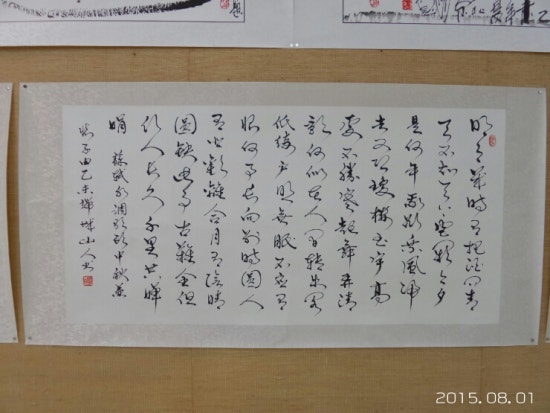 明月幾時有把酒問青
天不知天上宮闕今夕
是何年我欲乘風歸
去又恐瓊樓玉宇高
處不勝寒起舞弄清
影何似在人間轉朱閣
低綺戶照無眠不應有
恨何事長向別時圓人
有悲歡離合月有陰晴
圓缺此事古難全但
願人長久千里共嬋
娟 蘇軾水調歌頭中秋兼
懷子由乙未山人書
2015.08.01